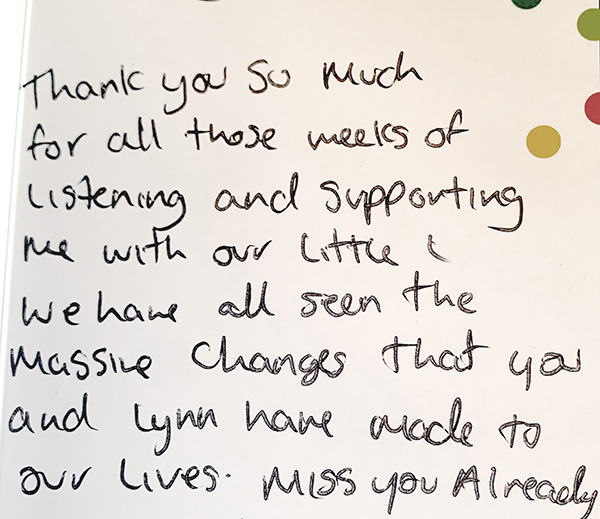 Thank you so much
for all those weeks of
listening and supporting
me with our little
We have all seen the
massive changes that you
and Lynn have made to
our lives. Miss you Already